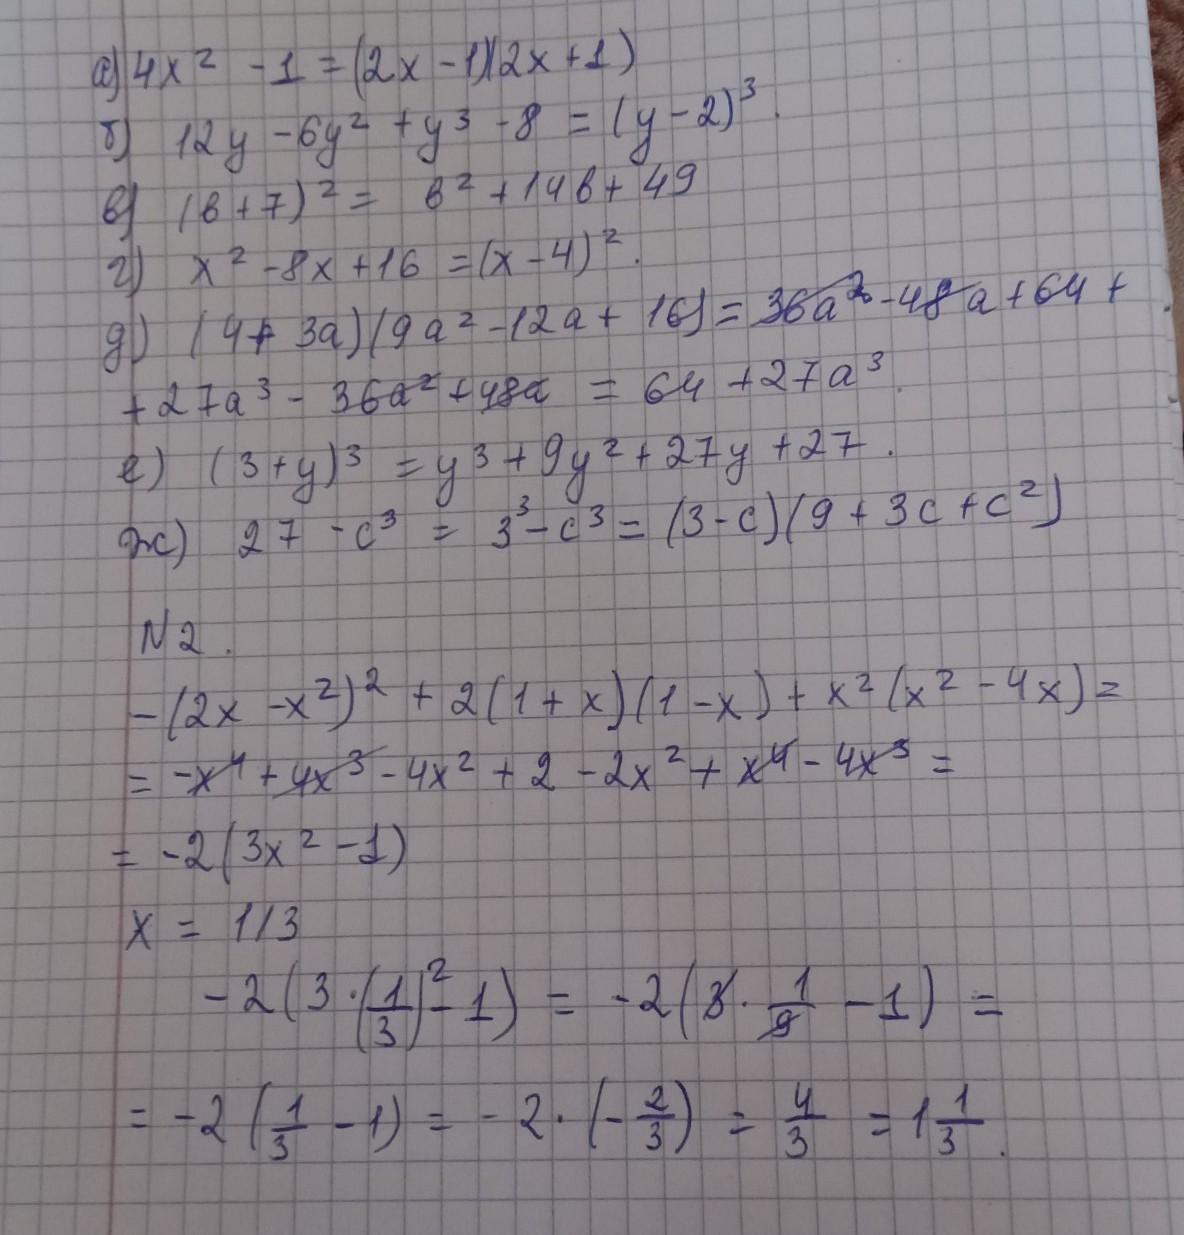 а) 4x² - 1 = (2x - 1)(2x + 1)
б) 12y - 6y² + y³ - 8 = (y - 2)³.
в) (в + 7)² = в² + 14в + 49
г) x² - 8x + 16 = (x - 4)².
д) (4 + 3a)(9a² - 12a + 16) = 36a² - 48a + 64 +
+ 27a³ - 36a² + 48a = 64 + 27a³.
е) (3 + y)³ = y³ + 9y² + 27y + 27.
ж) 27 - c³ = 3³ - c³ = (3 - c)(9 + 3c + c²)
N2.
- (2x - x²)² + 2(1 + x)(1 - x) + x²(x² - 4x) =
= -x⁴ + 4x³ - 4x² + 2 - 2x² + x⁴ - 4x³ =
= -2(3x² - 1)
x = 1/3
-2(3 · (1/3)² - 1) = -2(3 · 1/9 - 1) =
= -2(1/3 - 1) = -2 · (-2/3) = 4/3 = 1 1/3.